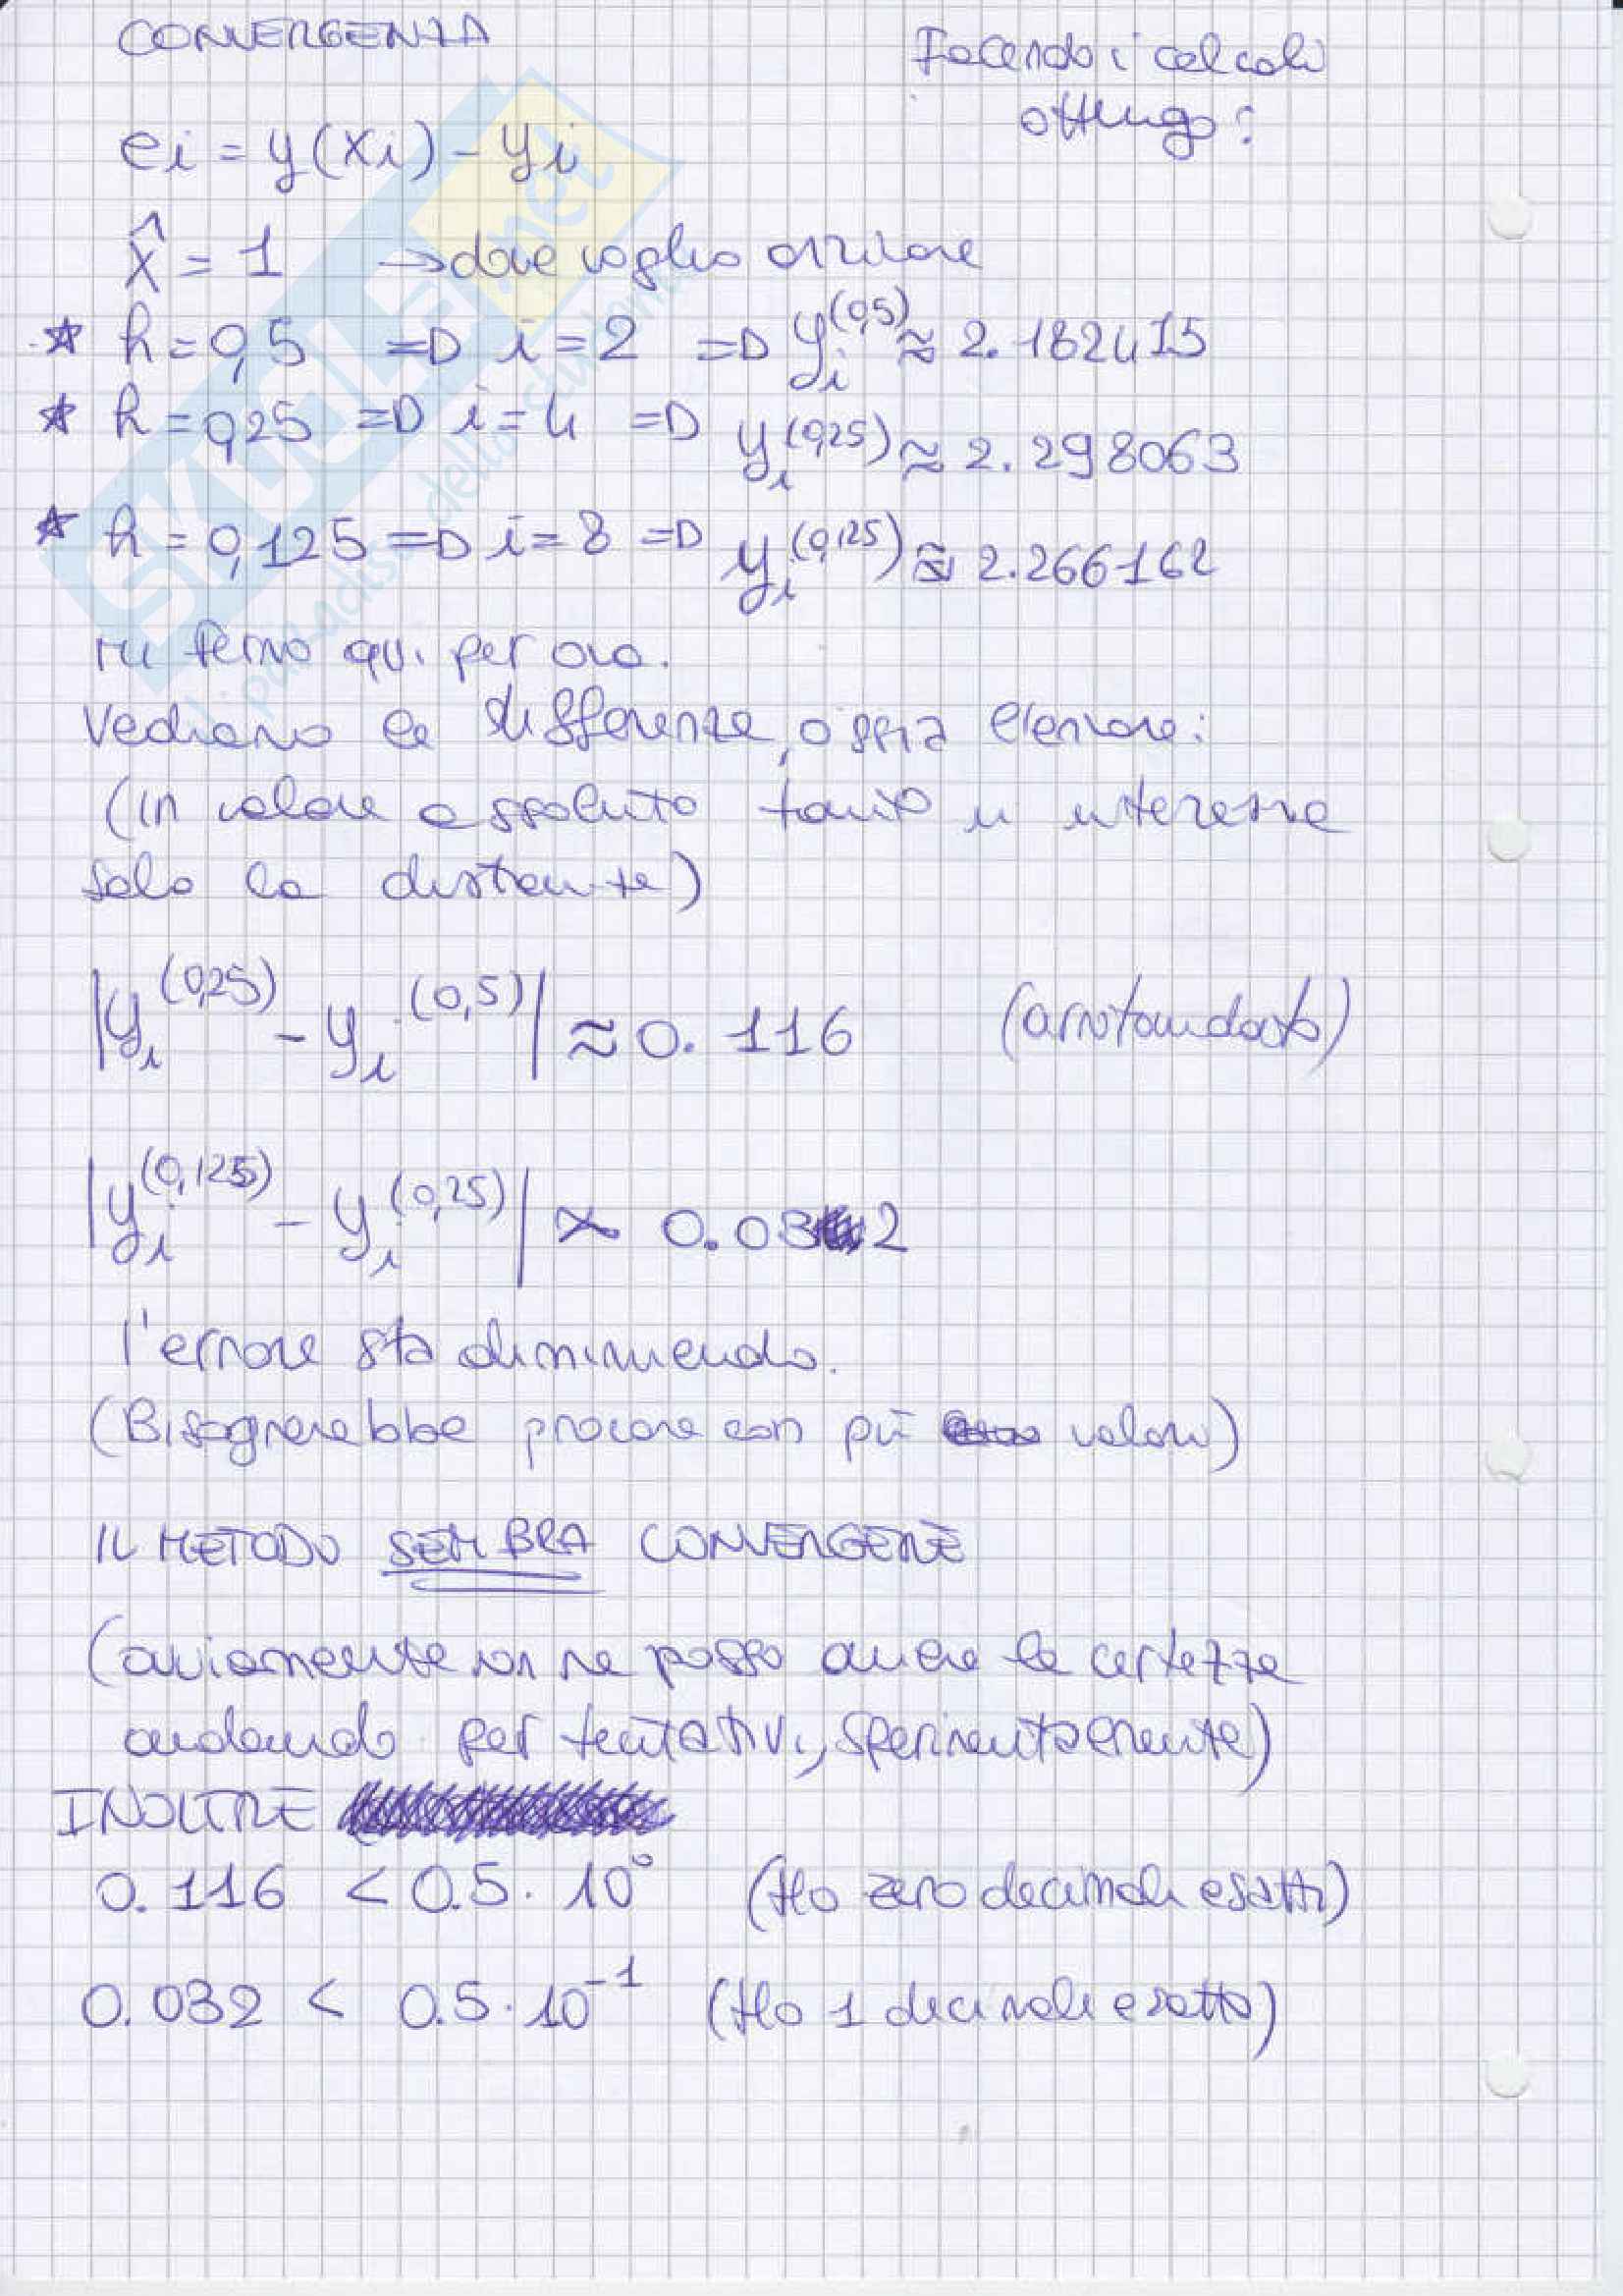 CONVERGENZA
Facendo i calcoli
ottengo:
ei = y(xi) - yi
x̂ = 1 → dove voglio arrivare
* h = 0,5 => i = 2 => yi^(0,5) ≈ 2.182415
* h = 0,25 => i = 4 => yi^(0,25) ≈ 2.298063
* h = 0,125 => i = 8 => yi^(0,125) ≈ 2.266162
mi fermo qui per ora.
Vediamo le differenze, ossia l'errore:
(in valore assoluto tanto mi interessa
solo la distanza)
|yi^(0,25) - yi^(0,5)| ≈ 0.116 (arrotondato)
|yi^(0,125) - yi^(0,25)| ≈ 0.032
l'errore sta diminuendo.
(Bisognerebbe provare con più valori)
IL METODO SEMBRA CONVERGERE
(ovviamente non ne posso avere la certezza
andando per tentativi, sperimentalmente)
INOLTRE
0.116 < 0.5 · 10^0 (Ho zero decimali esatti)
0.032 < 0.5 · 10^-1 (Ho 1 decimale esatto)
SKUOLA.net
il paradiso dello studente